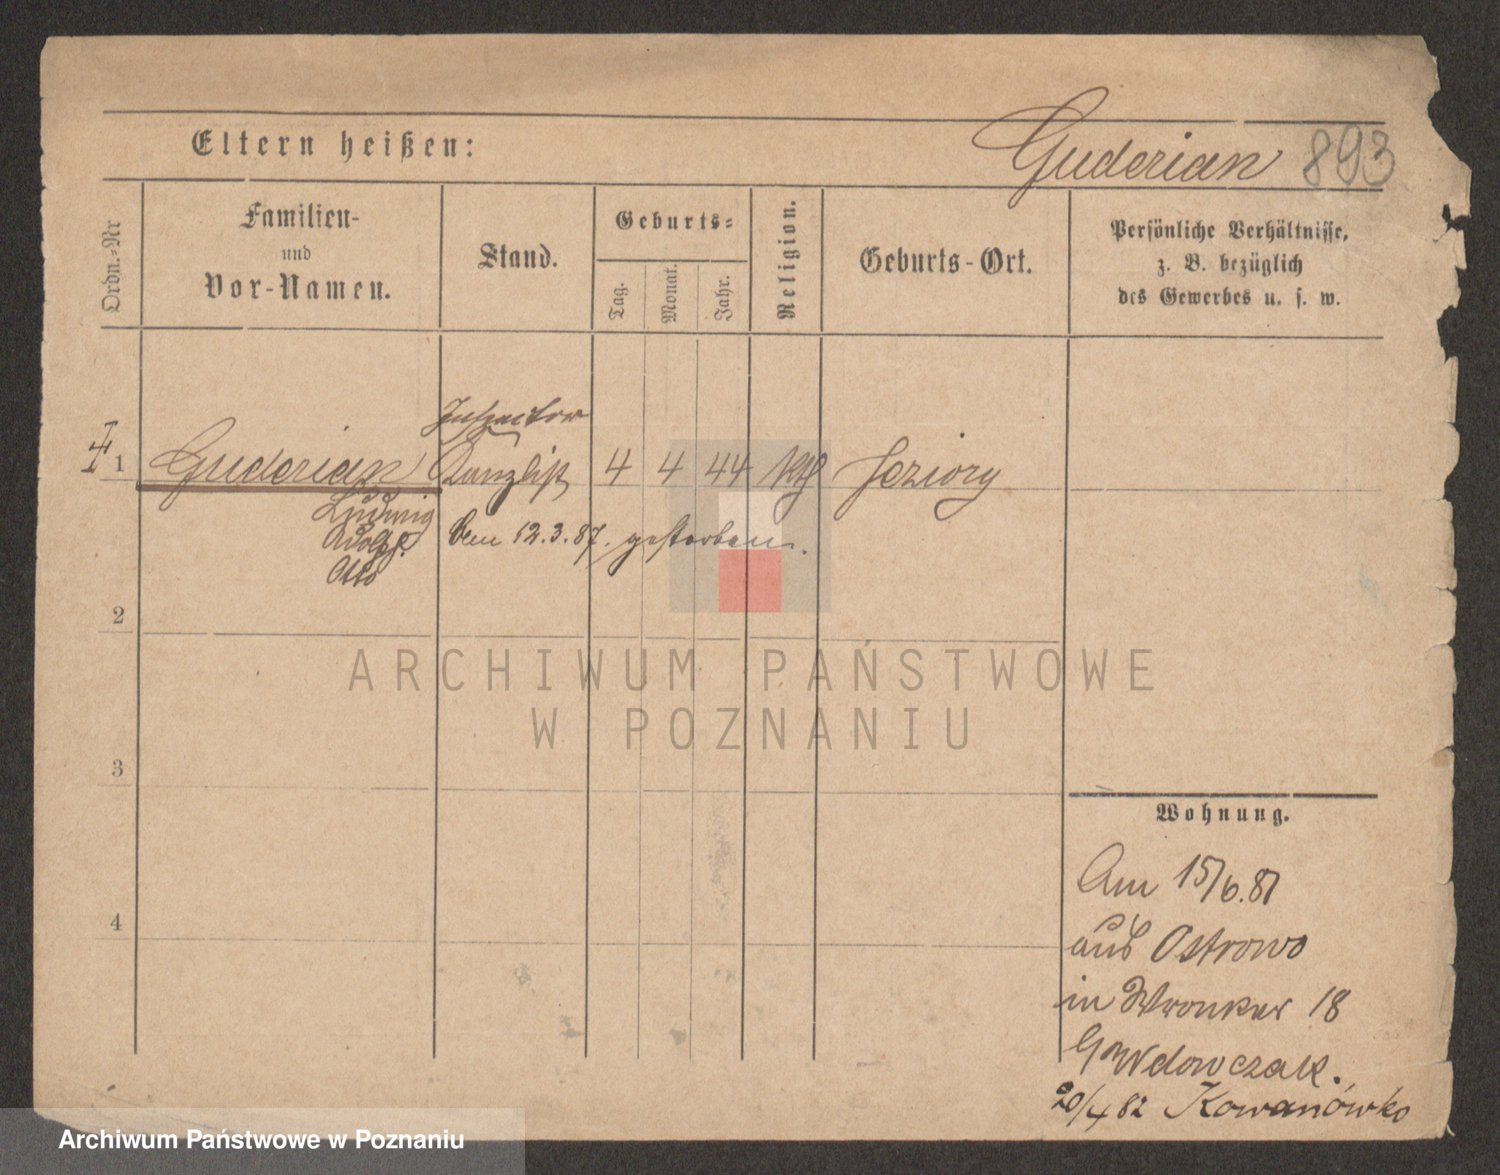 Eltern heißen:
Guderian 893
Ordn.=Nr
Familien-
und
Vor-Namen.
Stand.
Geburts=
Tag.
Monat.
Jahr.
Religion.
Geburts-Ort.
Persönliche Verhältnisse,
z. B. bezüglich
des Gewerbes u. s. w.
Inspector
1 Guderian Kanzlist 4 4 44 kth Jeziory
Ludwig
Adolf
Otto
Den 12.3.87. gestorben.
2
3
4
ARCHIWUM PAŃSTWOWE
W POZNANIU
Wohnung.
Am 15/6.81
aus Ostrowo
in Wronker 18
Wdowczak.
20/4 82 Kowanówko
Archiwum Państwowe w Poznaniu